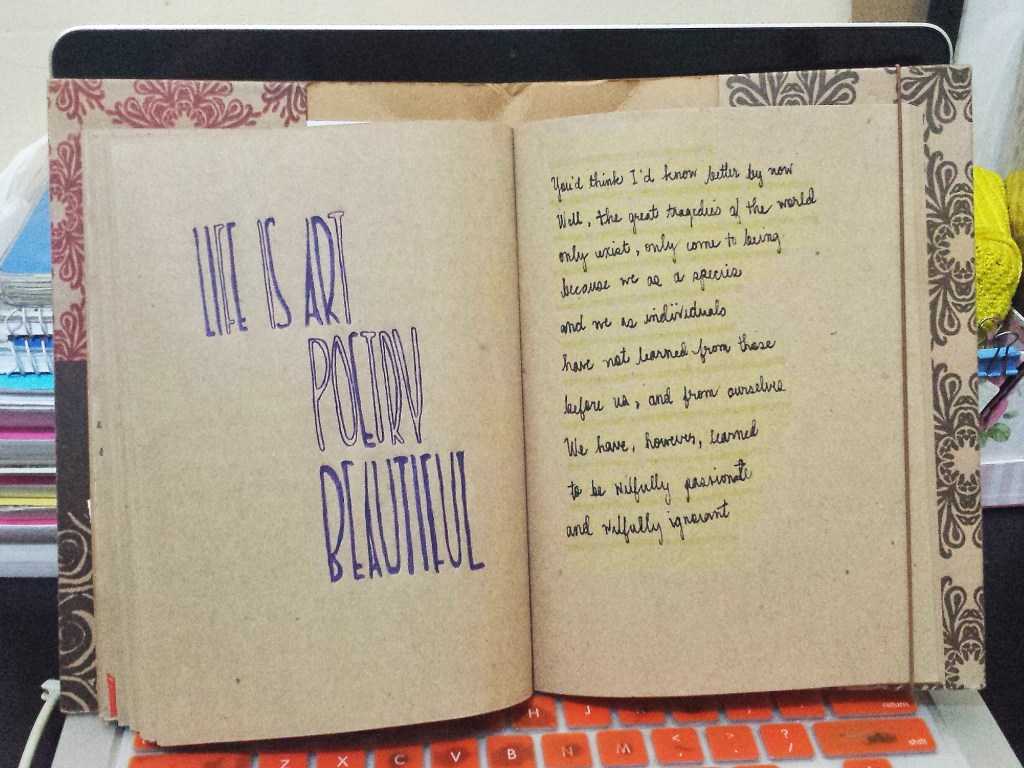 LIFE IS ART
POETRY
BEAUTIFUL
You'd think I'd know better by now
Well, the great tragedies of the world
only exist, only come to being
because we as a species
and we as individuals
have not learned from those
before us, and from ourselves
We have, however, learned
to be wilfully passionate
and wilfully ignorant
H J
return
Z X C V B N M < , > . ? /
shift